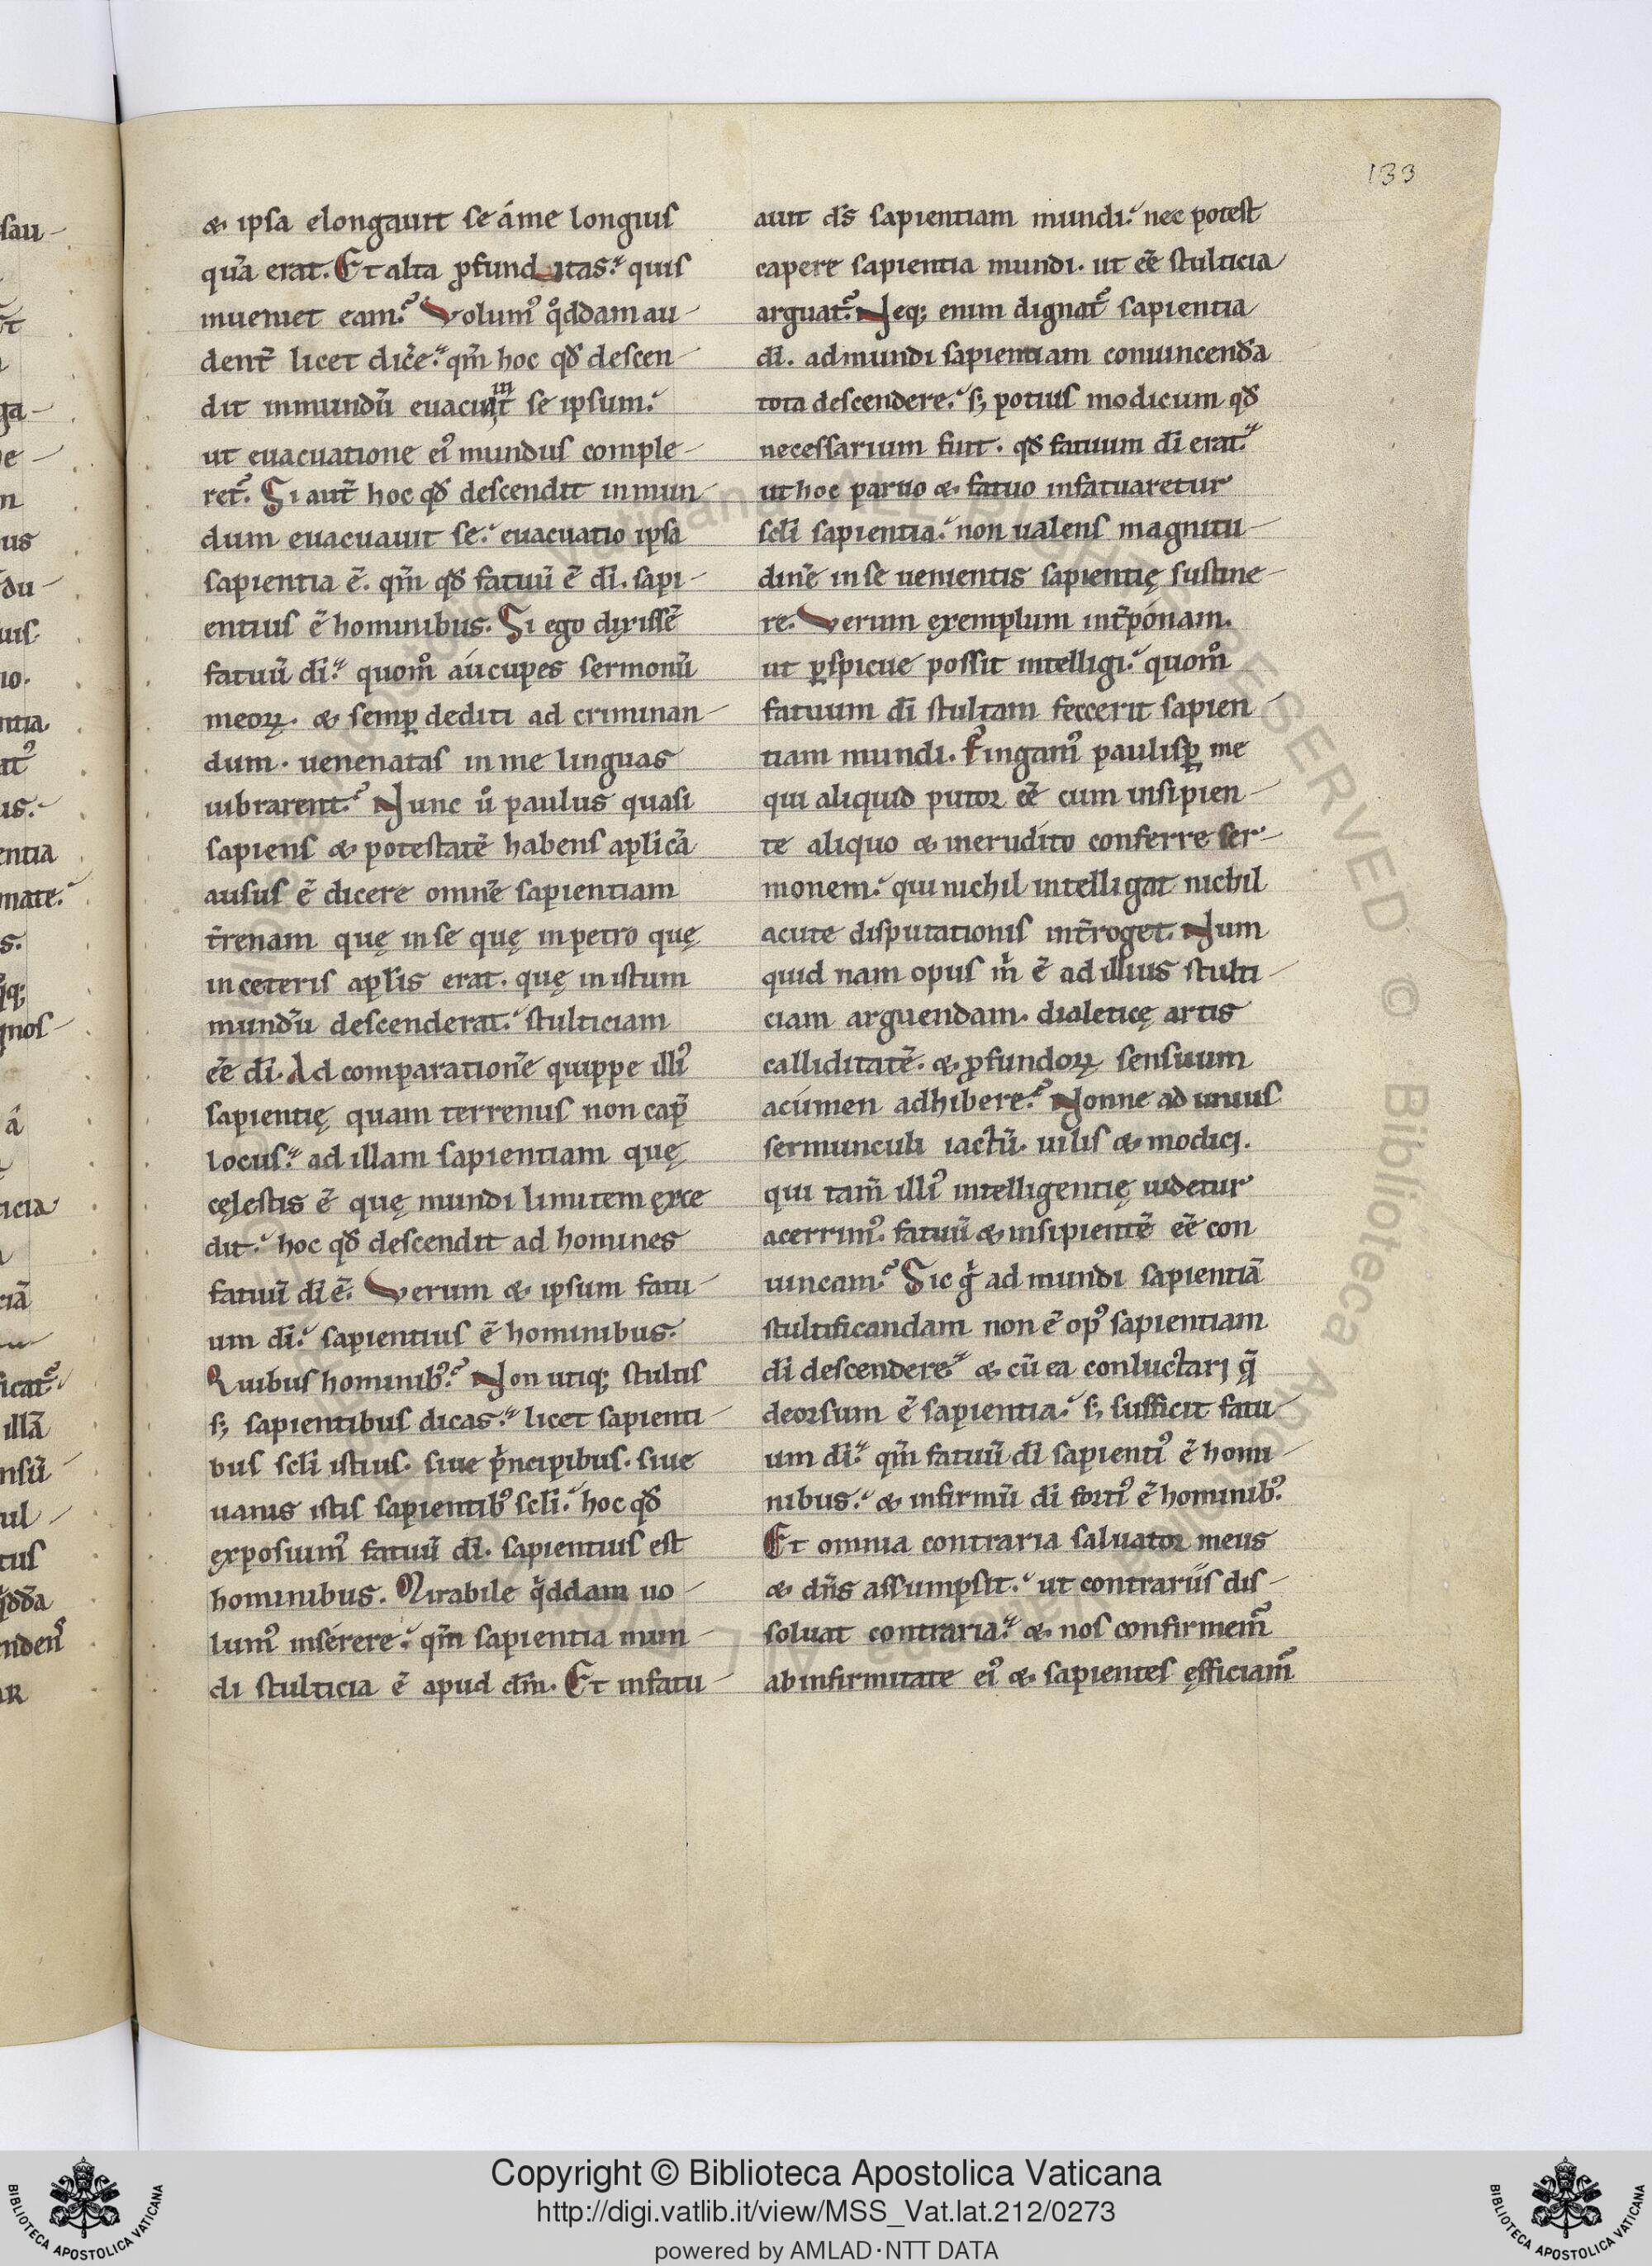 133
& ipsa elongauit se á me longius
quā erat. Et alta ꝓfund itas. quis
inueniet eam? Volum᷒ qͦddam au-
dent̄ licet dic̄e. qm̄ hoc qđ descen-
dit in mundū
se ipsum.
ut euacuatione ei᷒ mundus comple-
ret᷒. Si aut̄ hoc qđ descendit in mun-
dum euacuauit se. euacuatio ipsa
sapientia ē. qm̄ qđ fatuū ē dī. sapi-
entius ē hominibus. Si ego dixissē
fatuū dī. quom̊ aúcupes sermonū
meoꝝ. & semꝑ dediti ad criminan-
dum. uenenatas in me linguas
uibrarent? Nunc ů paulus quasi
sapiens & potestatē habens aplicā
ausus ē dicere omnē sapientiam
t̄renam quę in se quę in petro quę
in ceteris aplis erat. quę in istum
mundū descenderat. stulticiam
eē dī. Ad comparationē quippe illi᷒
sapientię quam terrenus non cap̄
locus. ad illam sapientiam quę
cęlestis ē quę mundi limitem exce
dit. hoc qđ descendit ad homines
fatuū dī ē. Verum & ipsum fatu-
um dī. sapientius ē hominibus.
Quibus hominib᷒? Non utiq; stultis
s; sapientibus dicas. licet sapienti-
bus scli istius. siue p̍ncipibus. siue
uanis istis sapientib᷒ scli. hoc qđ
exposuim᷒ fatuū dī. sapientius est
hominibus. Mirabile qͦddam uo-
lum᷒ insérere. qm̄ sapientia mun-
di stulticia ē apud dm̄. Et infatu-
auit ds̄ sapientiam mundi. nec potest
capere sapientia mundi. ut eē stulticia
arguat᷒. Neq; enim dignat᷒ sapientia
dī. ad mundi sapientiam conuincendā
tota descendere. s; potius modicum qđ
necessarium fuit. qđ fatuum dī erat.
ut hoc paruo & fatuo infatuaretur
scli sapientia. non ualens magnitu-
dinē in se uenientis sapientię sustine-
re. Verum exemplum int̄pónam.
ut ꝑspicue possit intelligi. quom̊
fatuum dī stultam feccerit sapien-
tiam mundi. Fingam᷒ paulisꝑ me
qui aliquid putor eē cum insipien-
te aliquo & inerudito conferre ser-
monem. qui nichil intelligat nichil
acute disputationis int̄roget. Num
quid nam opus m̍ ē ad illius stulti-
ciam arguendam. dialeticę artis
calliditatē. & ꝓfundoꝝ sensuum
acúmen adhibere? Nonne ad unius
sermunculi iactū. uilis & modici.
qui tam̄ illi᷒ intelligentię uidetur
acerrim᷒. fatuū & insipientē eē con
uincam? Sic g̍ ad mundi sapientiā
stultificandam non ē op᷒ sapientiam
dī descendere & cū ea conluctari q̄
deorsum ē sapientia. s; sufficit fatu-
um dī. qm̄ fatuū dī sapienti᷒ ē homi-
nibus. & infirmū dī forti᷒ ē hominib᷒.
Et omnia contraria saluator meus
& dn̄s assumpsit. ut contrariis dis-
soluat contraria. & nos confirmem᷒
ab infirmitate ei᷒ & sapientes efficiam᷒
Copyright © Biblioteca Apostolica Vaticana
http://digi.vatlib.it/view/MSS_Vat.lat.212/0273
powered by AMLAD·NTT DATA
BIBLIOTECA APOSTOLICA VATICANA
BIBLIOTECA APOSTOLICA VATICANA